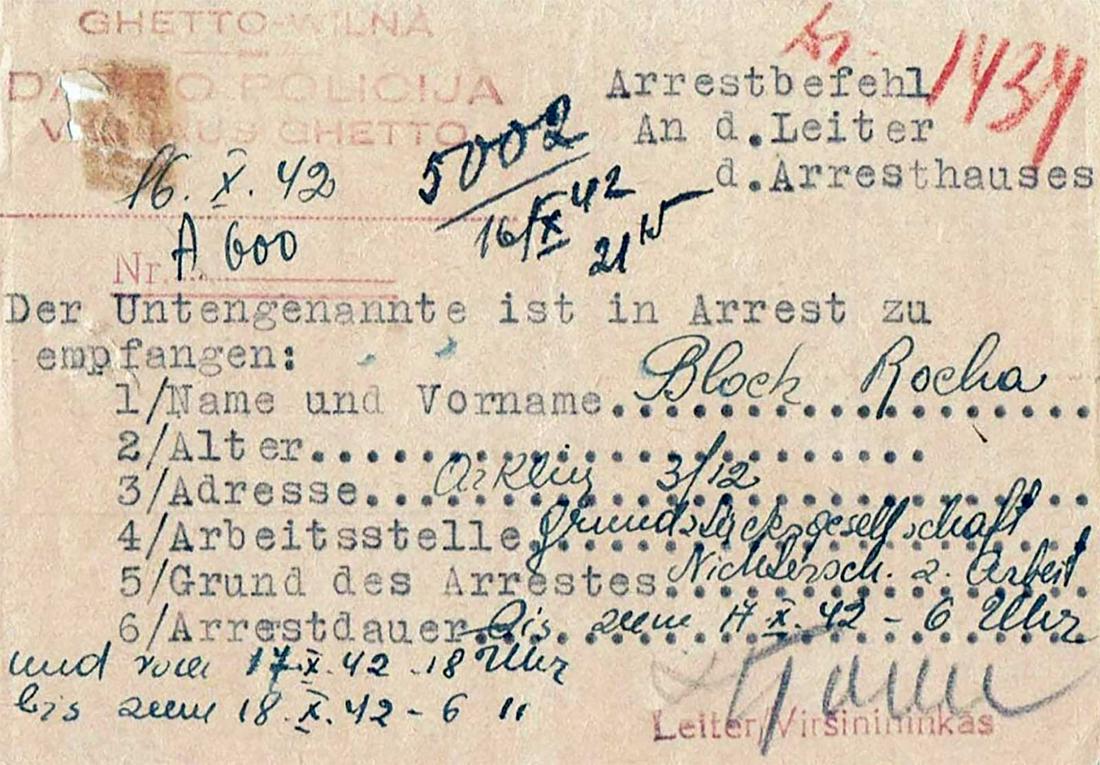 GHETTO-WILNA
POLICIJA
GHETTO
Arrestbefehl
Nr. 1434
An d.Leiter
d.Arresthauses
16. X. 42
5002
16/X 42
21 15
Nr. A 600
Der Untengenannte ist in Arrest zu
empfangen:
1/Name und Vorname Bloch Rocha
2/Alter
3/Adresse Arklių 3/12
4/Arbeitsstelle Grundstücksgesellschaft
5/Grund des Arrestes Nichtersch. z. Arbeit
6/Arrestdauer bis zum 17 X. 42 - 6 Uhr
und vom 17 X. 42 - 18 Uhr
bis zum 18. X. 42 - 6 "
Leiter/Viršinininkas